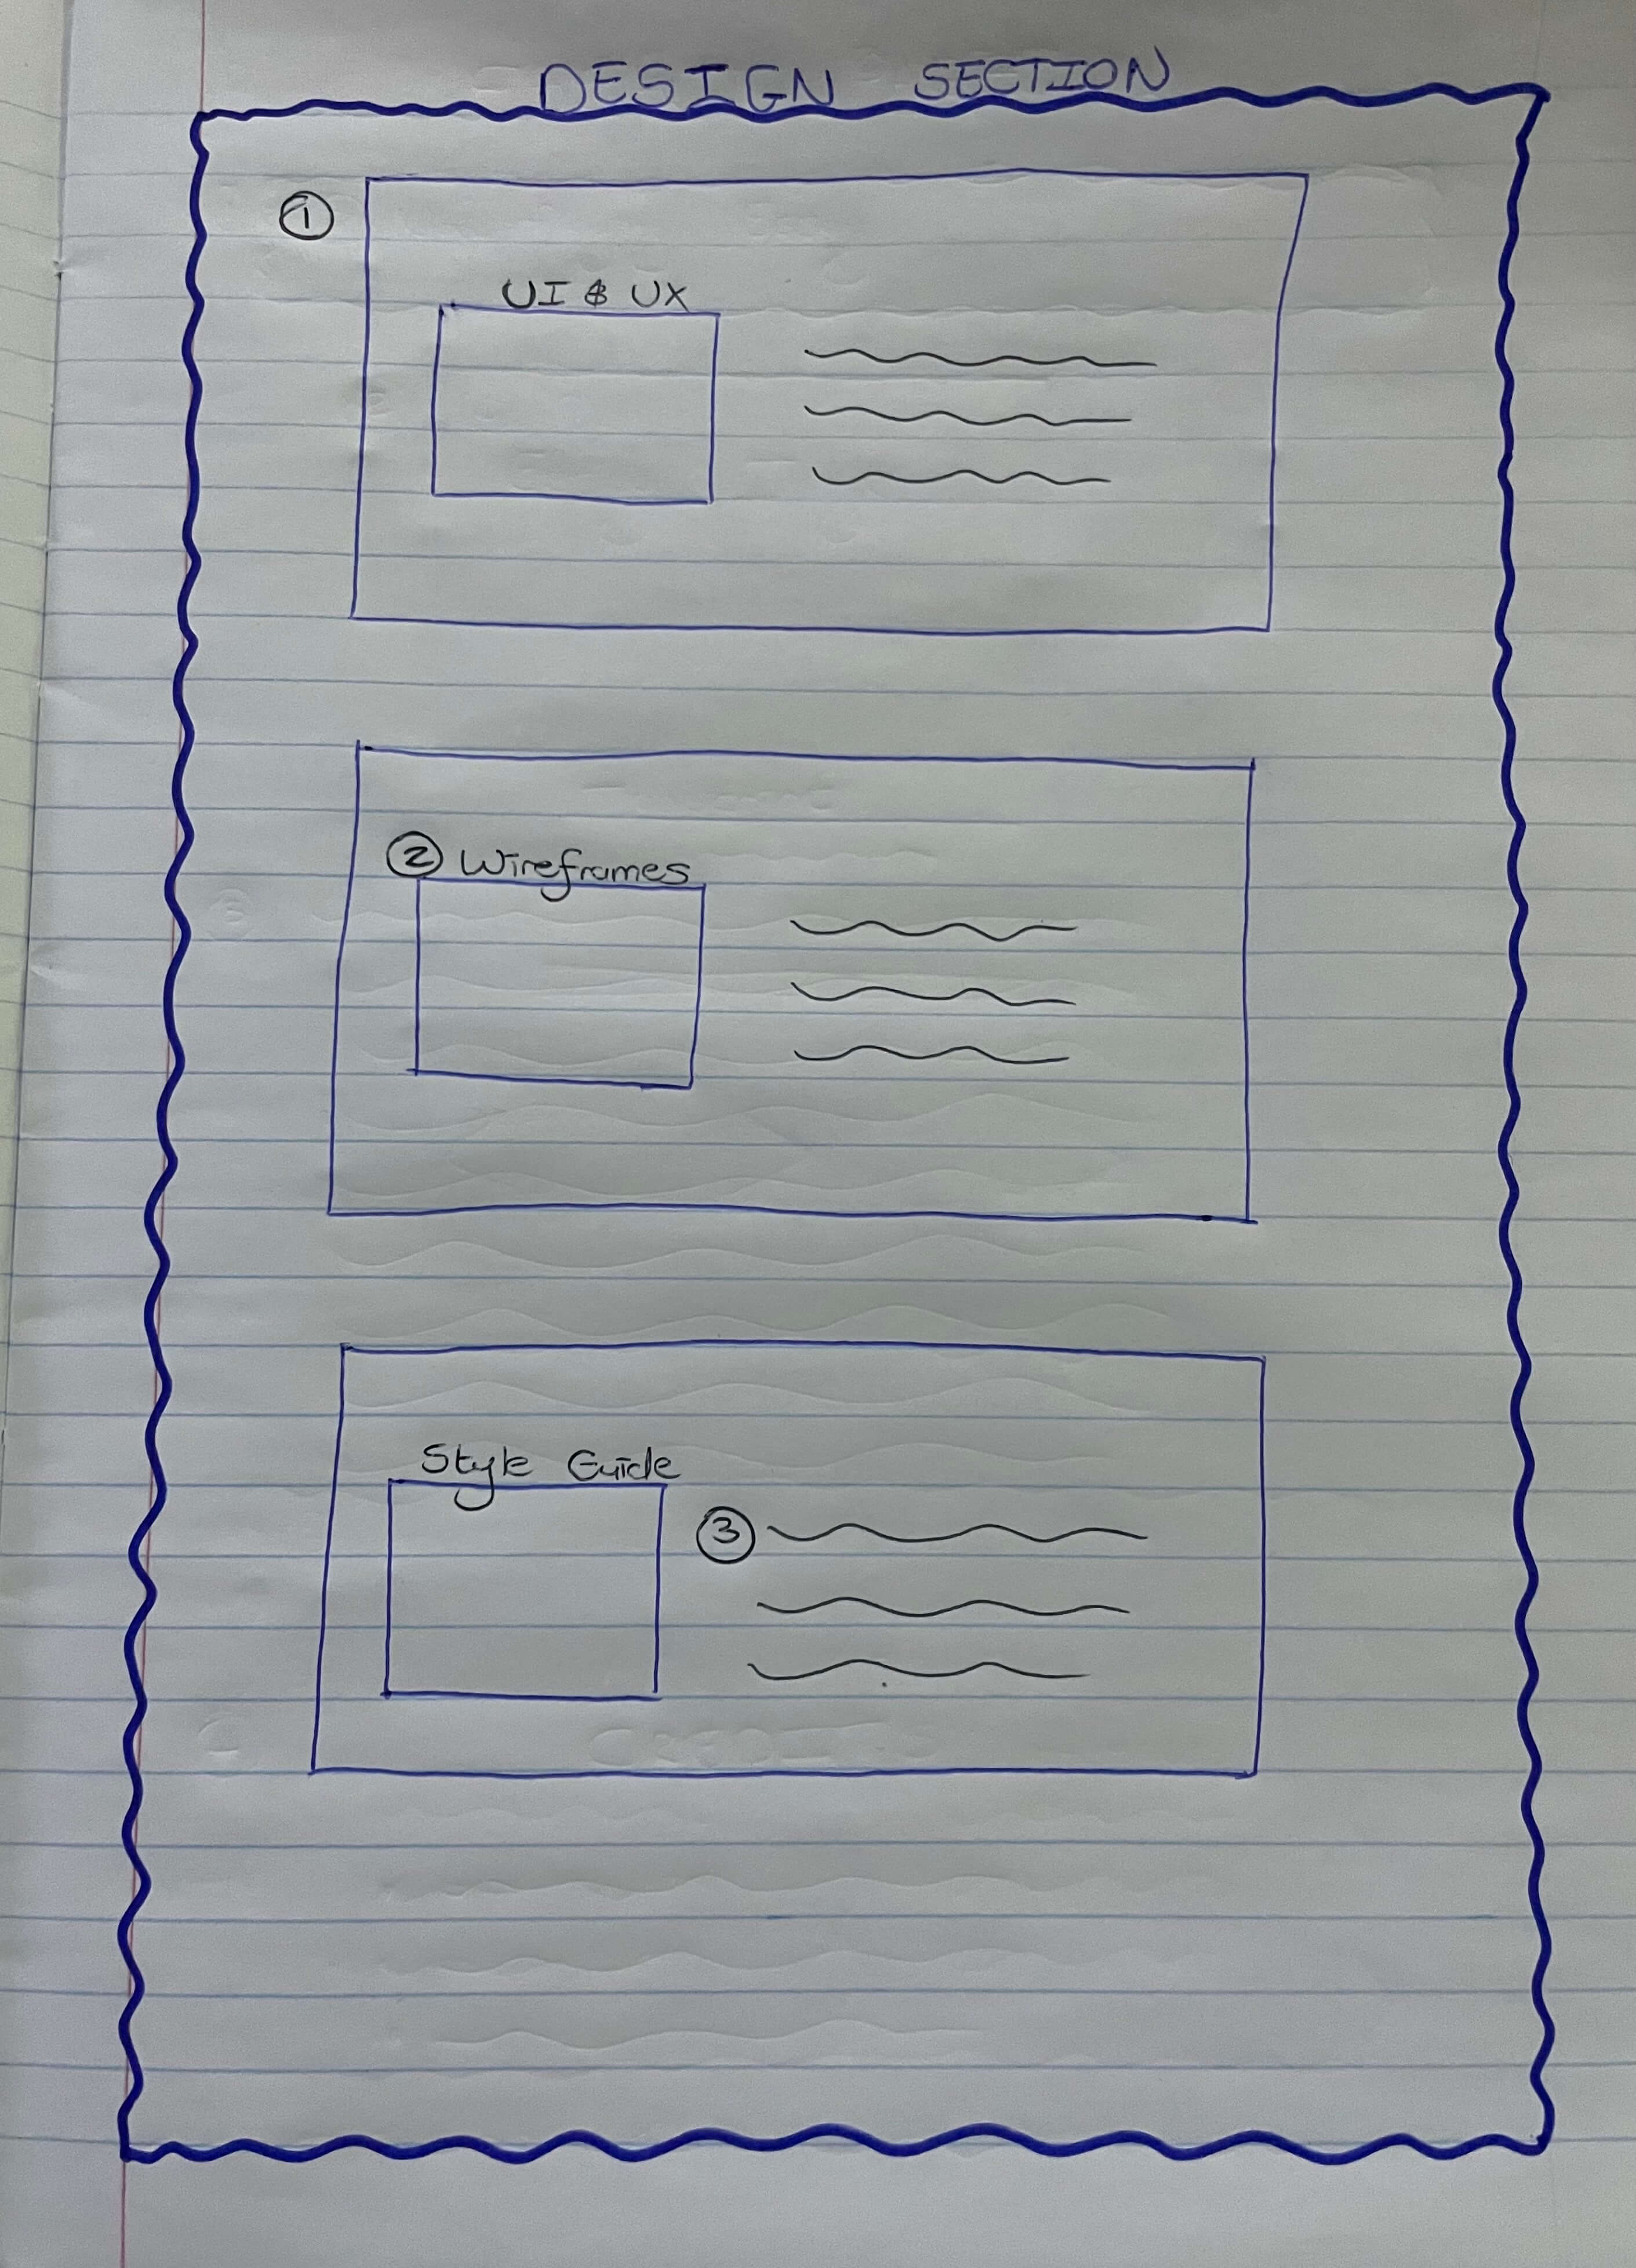 DESIGN SECTION
①
UI & UX
② Wireframes
Style Guide
③